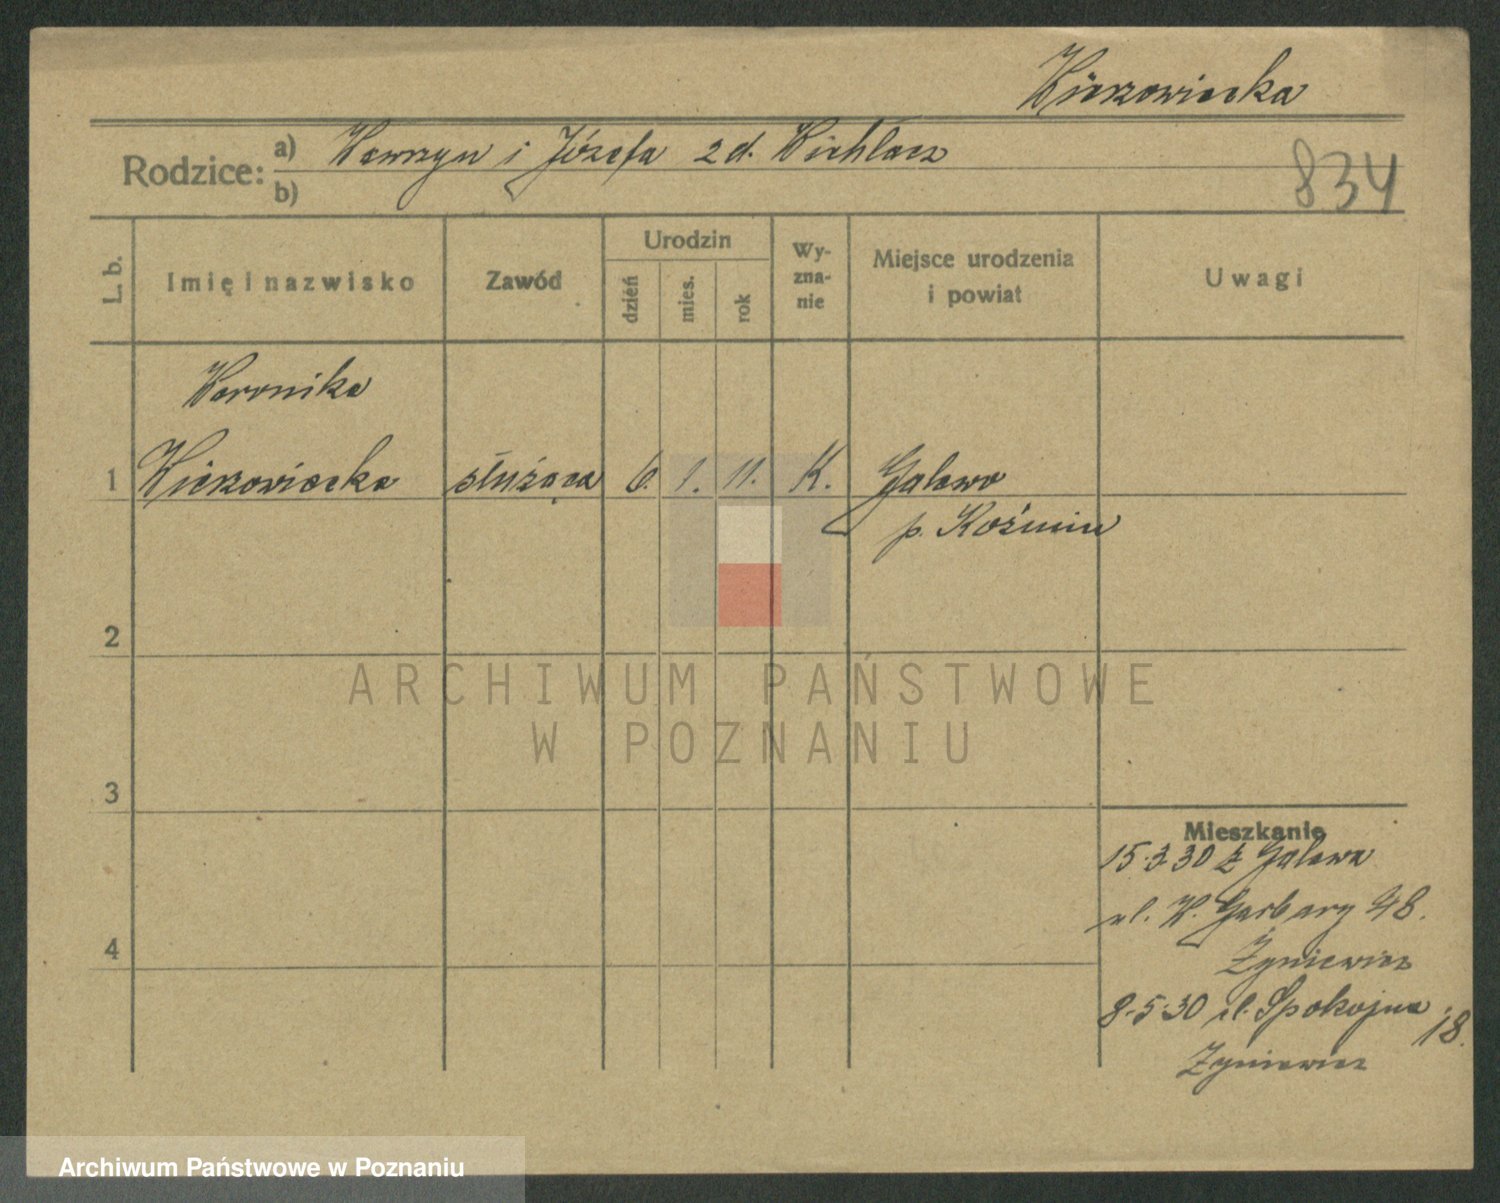 Wiezowiecka
Rodzice: a) Wawrzyn i Józefa z d. Wichłacz
b)
834
L. b.
Imię i nazwisko
Zawód
Urodzin
dzień
mies.
rok
Wyznanie
Miejsce urodzenia
i powiat
Uwagi
Weronika
1 Wiezowiecka służąca 6. 1. 11. K. Galewo
p. Koźmin
2
3
4
Mieszkanie
15.3.30 z Galewa
ul. W. Garbary 48.
Żyniewicz
8.5.30 ul. Spokojna 18.
Żyniewicz
ARCHIWUM PAŃSTWOWE
W POZNANIU
Archiwum Państwowe w Poznaniu